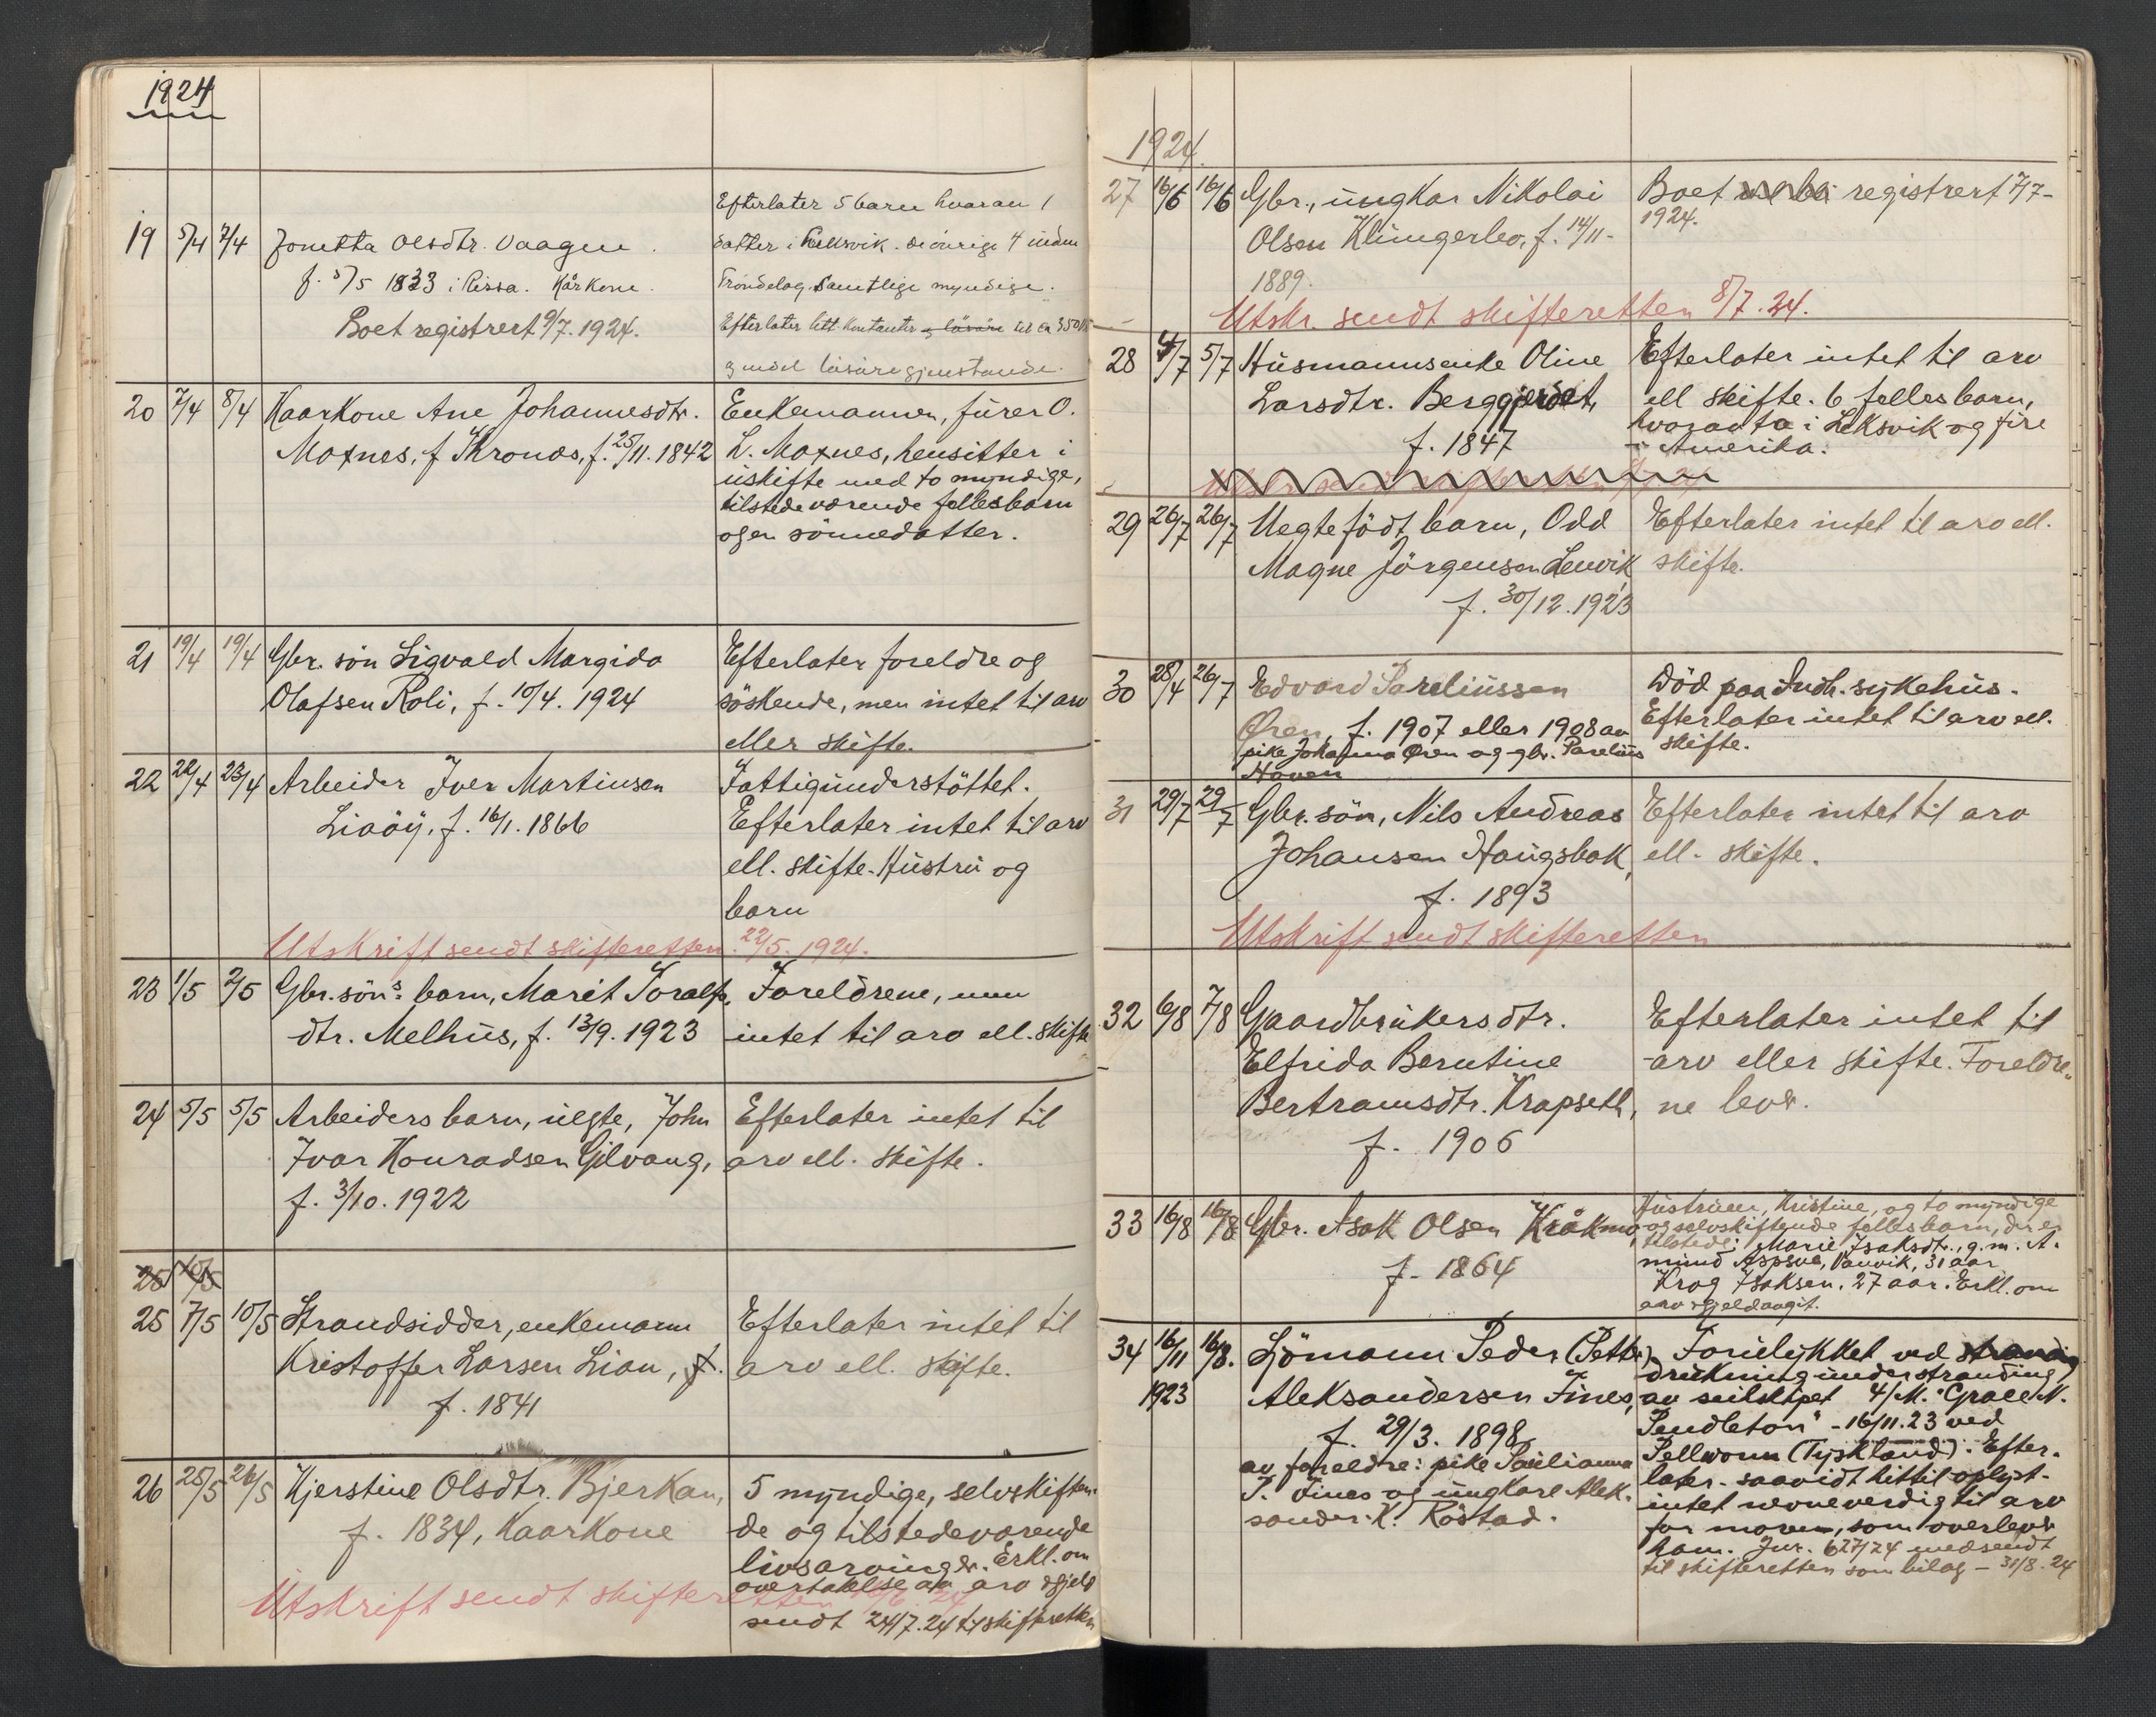 1924
19 5/4 7/4 Jonetta Olsdtr. Vaagen.
f. 5/5 1833 i Rissa. Kårkone.
Boet registrert 9/7. 1924.
Efterlater 5 barn hvorav 1
datter i Leksvik. de övrige 4 inden
Tröndelag. Samtlige myndige.
Efterlater litt kontanter og lösöre til ca 350 kr
og endel lösöregjenstande.
20 7/4 8/4 Kaarkone Ane Johannesdtr.
Moxnes, f Kronos, f. 25/11. 1842
Enkemannen, fürer O.
L. Moxnes, hensitter i
uskifte med to myndige,
tilstedevorende fellesbarn
og en sönnedatter.
21 19/4 19/4 Gbr. sön Sigvald Margido
Olafsen Roli, f. 10/4. 1924
Efterlater foreldre og
söskende, men intet til arv
eller skifte.
22 22/4 23/4 Arbeider Iver Martinsen
Liaöy, f. 16/1. 1866
Fattigunderstöttet.
Efterlater intet til arv
ell. skifte. Hustru og
barn
Utskrift sendt skifteretten. 22/5. 1924.
23 1/5 2/5 Gbr. söns barn, Marit Toralfs
dtr. Melhus, f. 13/9. 1923
Foreldrene, men
intet til arv ell. skifte
24 5/5 5/5 Arbeiders barn, uegte, John
Ivar Konradsen Gilvang,
f. 3/10. 1922
Efterlater intet til
arv ell. skifte.
25 10/5
25 7/5 10/5 Strandsidder, enkemann
Kristoffer Larsen Lian, f.
f. 1841
Efterlater intet til
arv ell. skifte.
26 25/5 26/5 Kjerstine Olsdtr. Bjerkan,
f. 1834, Kaarkone
5 myndige, selvskiften-
de og tilstedevorende
livsarvinger. Erkl. om
overtakelse av arv & gjeld
sendt 24/7.24 til skifteretten
Utskrift sendt skifteretten
1924.
27 16/6 16/6 Gbr., ungkar Nikolai
Olsen Klungerbo, f. 14/11-
1889.
Boet registrert 7/7-
1924.
Utskr. sendt skifteretten 8/7. 24.
28 4/7 5/7 Husmannsenke Oline
Larsdtr. Berggjerdet,
f. 1847
Efterlater intet til arv
ell skifte. 6 felles barn,
hvorav to i Leksvik og fire
i Amerika.
29 26/7 26/7 Uegtefödt barn, Odd
Magne Jörgensen Lenvik,
f. 30/12. 1923
Efterlater intet til arv ell.
skifte.
30 28/4 26/7 Edvard Pareliussen
Øren, f. 1907 eller 1908 av
pike Johanna Øren og gbr. Parelius
Hoven
Död paa Indh. sykehus.
Efterlater intet til arv ell.
skifte.
31 29/7 29/7 Gbr. sön, Nils Andreas
Johansen Haugsbak,
f. 1893
Efterlater intet til arv
ell. skifte.
Utskrift sendt skifteretten
32 6/8 7/8 Gaardbrukersdtr.
Elfrida Berntine
Bertramsdtr. Krapseth,
f. 1906
Efterlater intet til
arv eller skifte. Foreldre-
ne lever.
33 16/8 16/8 Gbr. Isak Olsen Kråkmo,
f. 1864
Hustruen, Kristine, og to myndige
og selvskiftende fellesbarn, der er
tilstede: Marie Isaksdtr., g.m. A-
mund Aspsve, Vanvik, 31 aar
Krog Isaksen. 27 aar. Erkl. om
arv & gjeld avgit.
34 16/11 16/8. Sjömann Peder (Petter)
1923 Aleksandersen Fines,
f. 29/3. 1898
av foreldre: pike Paulianna
J. Fines og ungkar Alek-
sander K. Röstad.
Forulykket ved
drukning under stranding
av seilskipet 4/M. "Grace N.
Pendleton" - 16/11.23 ved
Pellworm (Tyskland). Efter-
later - saavidt hittil oplyst -
intet nevneverdig til arv
for moren, som overlever
ham. Jnr. 627/24 medsendt
til skifteretten som bilag - 31/8.24